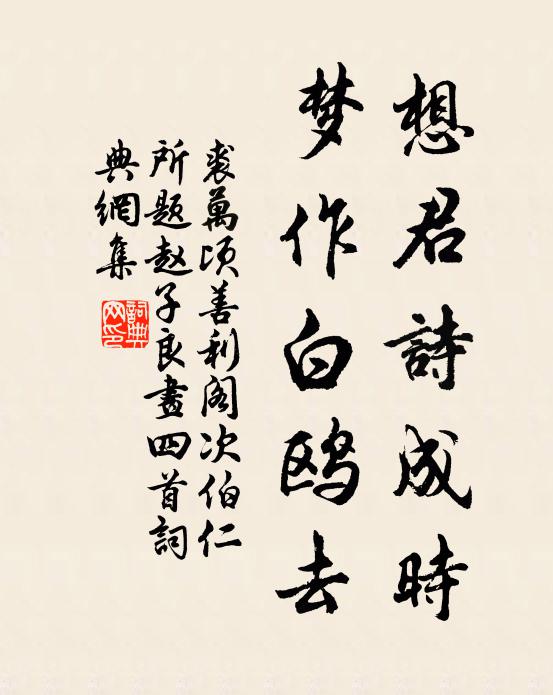 想君詩成時
梦作白鸥去
裘萬顷善利阁次伯仁
所题赵子良畫四首詞
典網集
詞典
网印